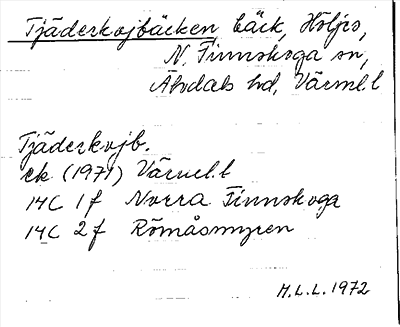 Tjäderkojbäcken bäck, Höljes,
N. Finnskoga sn,
Älvdals hd, Värml. l
Tjäderkojb.
ek (1971) Värml. l
14C 1f Norra Finnskoga
14C 2f Römåsmyren
M.L.L. 1972